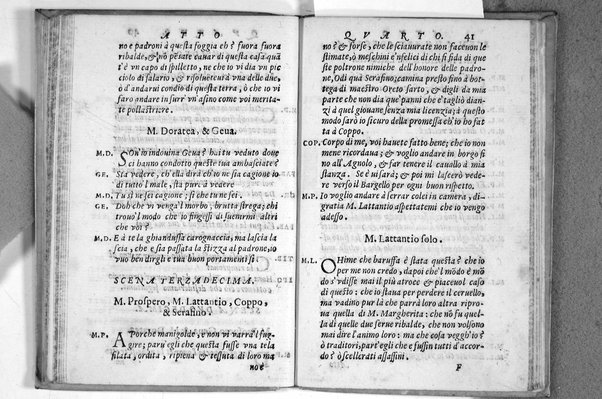 ATTO
no e padroni à questa foggia eh? fuora fuora
ribalde, & nõ pẽsate cauar di questa casa quã
t'è vn capo di spilletto, ne che io vi dia vn pic
ciolo di salario, & risoluetevi à vna delle due,
ò d'andarui con dio di questa terra, ò che io vi
faro andare in surr' vn' asino come voi merita-
te pollastriere.
M. Doratea, & Geua.
M.D. Son'io indouina Geua? hai tu veduto doue
ci hanno condotto queste tua ambasciate?
GE. Sta vedere, ch'ella dirà ch'io ne sia cagione io
di tutto'l male, sta pur à vedere
M.D. Tu si ne sei cagione; si che tu ne sei.
GE. Doh che vi venga'l morbo, brutta strega; chi
trouo'l modo che io fingessi di suenirmi altri
che voi?
M.D. E à te la ghiandussa carognaccia, ma lascia la
scia, che e sia passata la stizza al padrone, io
vuo ben dirgli e tua buon portamenti si.
SCENA TERZADECIMA.
M. Prospero, M. Lattantio, Coppo,
& Serafino.
M.P. A Porche manigolde, e non vi varrà l'fug-
gire; paru'egli che questa fusse vna tela
filata, ordita, ripiena & tessuta di loro ma
no e
QVARTO. 41
no? & forse, che le sciaurate non faceuon le
stimate, ò meschini e'nfelici di chi si fida di que
ste poltrone nimiche dell'honore delle padro-
ne, Odi quà Serafino; camina presto fino à bot-
tega di maestro Oreto sarto, & digli da mia
parte che non dia que'panni che e'tagliò dian-
zi à quel giouane senza mia licenzia; à questo
modo sarò io sicuro della promessa ch'io ho fat
ta à Coppo.
COP. Corpo di me, voi hauete fatto bene; che io non
mene ricordaua; & voglio andare in borgo fi
no all'Agnolo, & far tenere il cauallo à mia
stanza. Se è vi sarà; & poi mi lascerò vede-
re verso il Bargello per ogni buon rispetto.
M.P. Io voglio andare à serrar colei in camera, di-
gratia M. Lattantio aspettatemi che io vengo
adesso.
M. Lattantio solo.
M.L. O Hime che baruffa è stata questa? che io
per me non credo, dapoi che'l mõdo è mõ
do s'vdisse mai il più atroce & piaceuol caso
di questo: che io staua per perdere il ceruello,
ma vadino pur là che parrà loro altra ripro
ua quella di M. Margherita: che nõ fu quel-
la di quelle due serue ribalde, che non volsono
mai dire l'animo loro: ma che cosa veggh'io?
ò traditori, part'egli che e fussin tutti d'accor-
do? ò scellerati assassini.
F